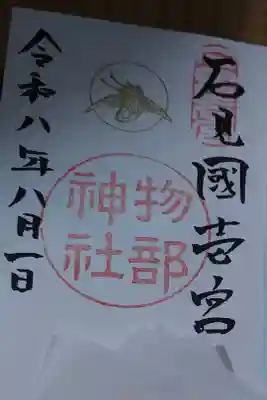 石見國壱宮
物部
神社
令和八年八月一日